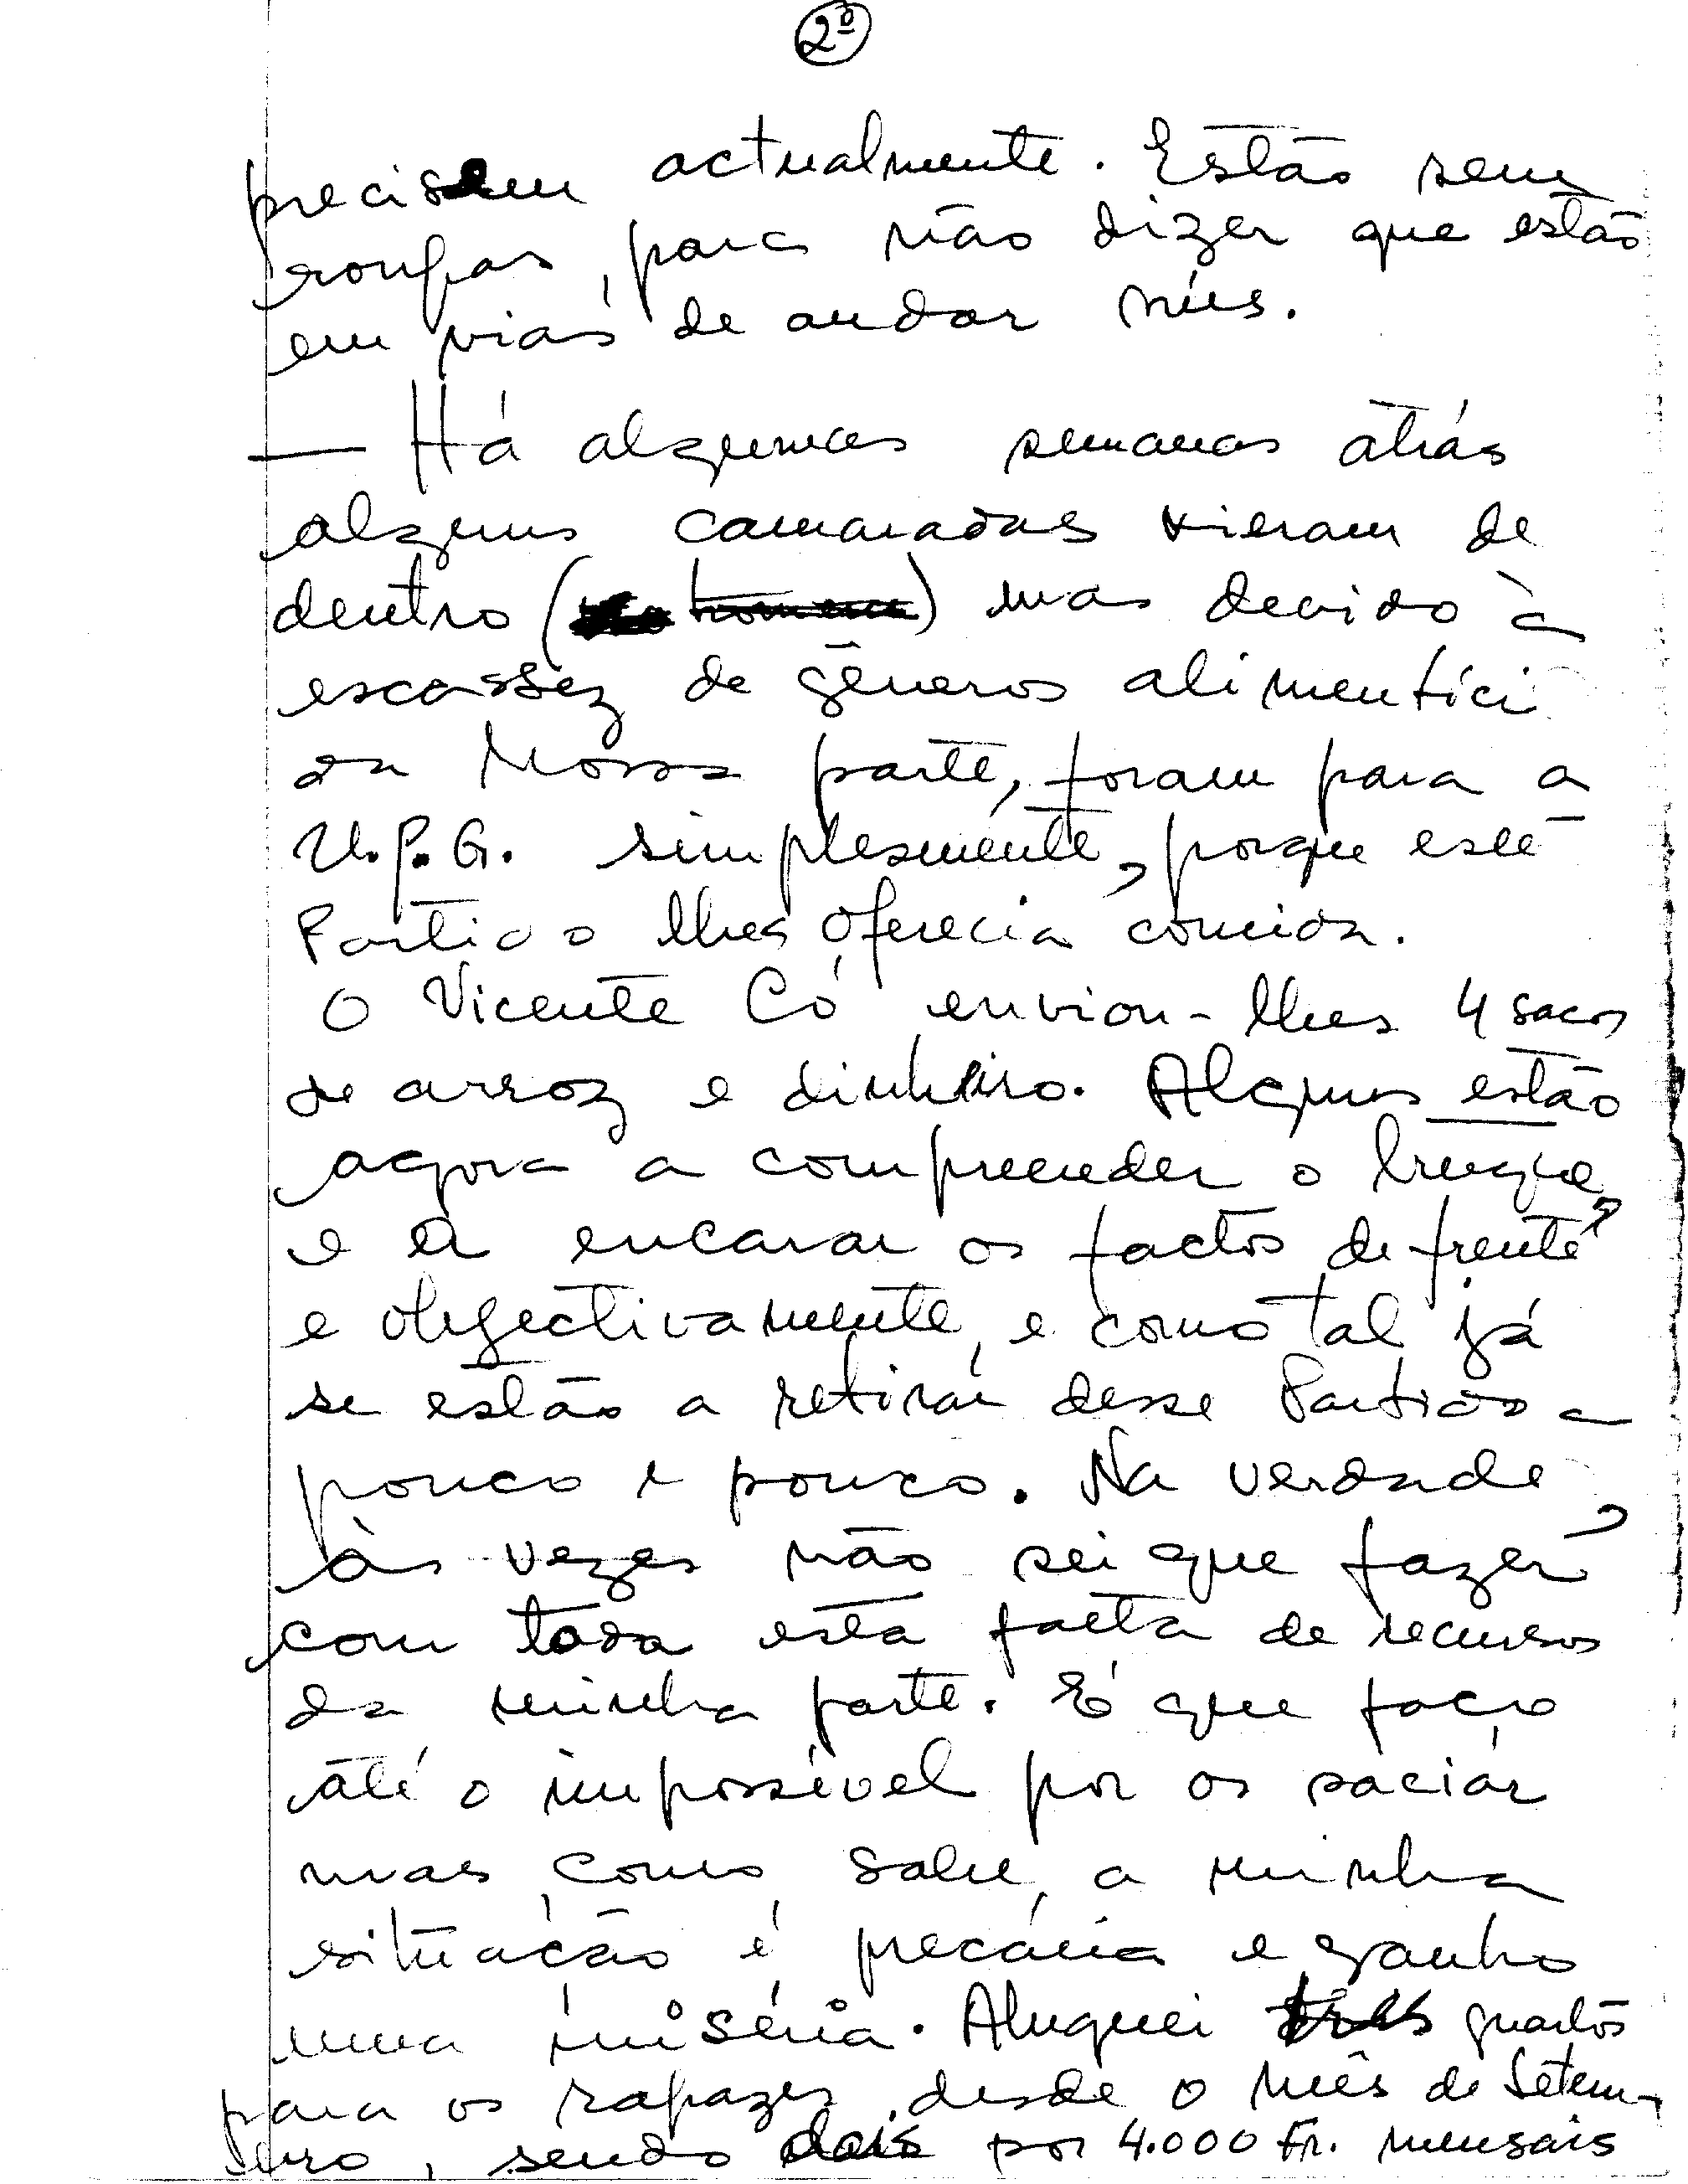 2º
precisem actualmente. Estão sem
roupas, para não dizer que estão
em vias de andar nús.
— Há algumas semanas atrás
alguns camaradas vieram de
dentro () mas devido à
escassez de géneros alimentíci
da Nossa parte, foram para a
U.P.G. simplesmente, porque este
Partido lhes oferecia comida.
O Vicente Có enviou-lhes 4 sacos
de arroz e dinheiro. Alguns estão
agora a compreender o truque,
e a encarar os factos de frente
e objectivamente, e como tal já
se estão a retirar desse Partido a
pouco e pouco. Na verdade,
às vezes não sei que fazer
com toda esta falta de recursos
da minha parte. É que faço
até o impossível por os saciar
mas, como sabe, a minha
situação é precária e ganho
uma miséria. Aluguei três quartos
para os rapazes, desde o mês de Setem-
bro, sendo dois por 4.000 Fr. mensais